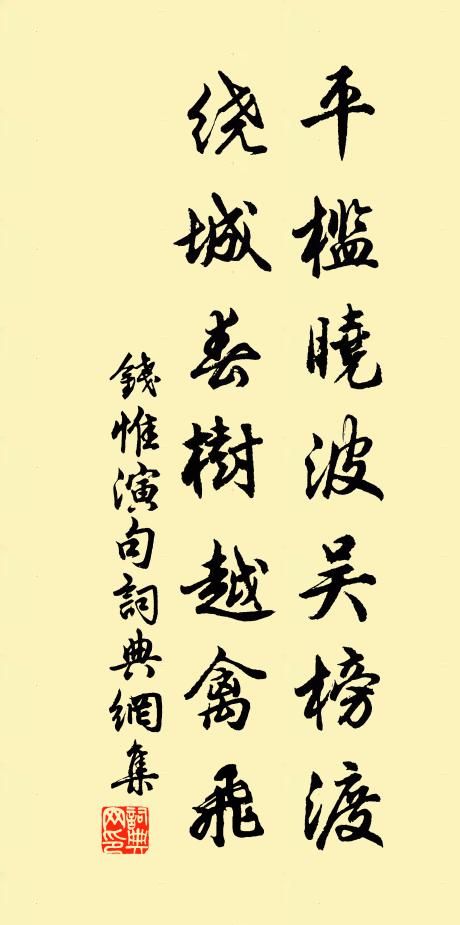 平槛曉波吴榜渡
绕城春樹越禽飛
錢惟演句詞典網集
詞典网印